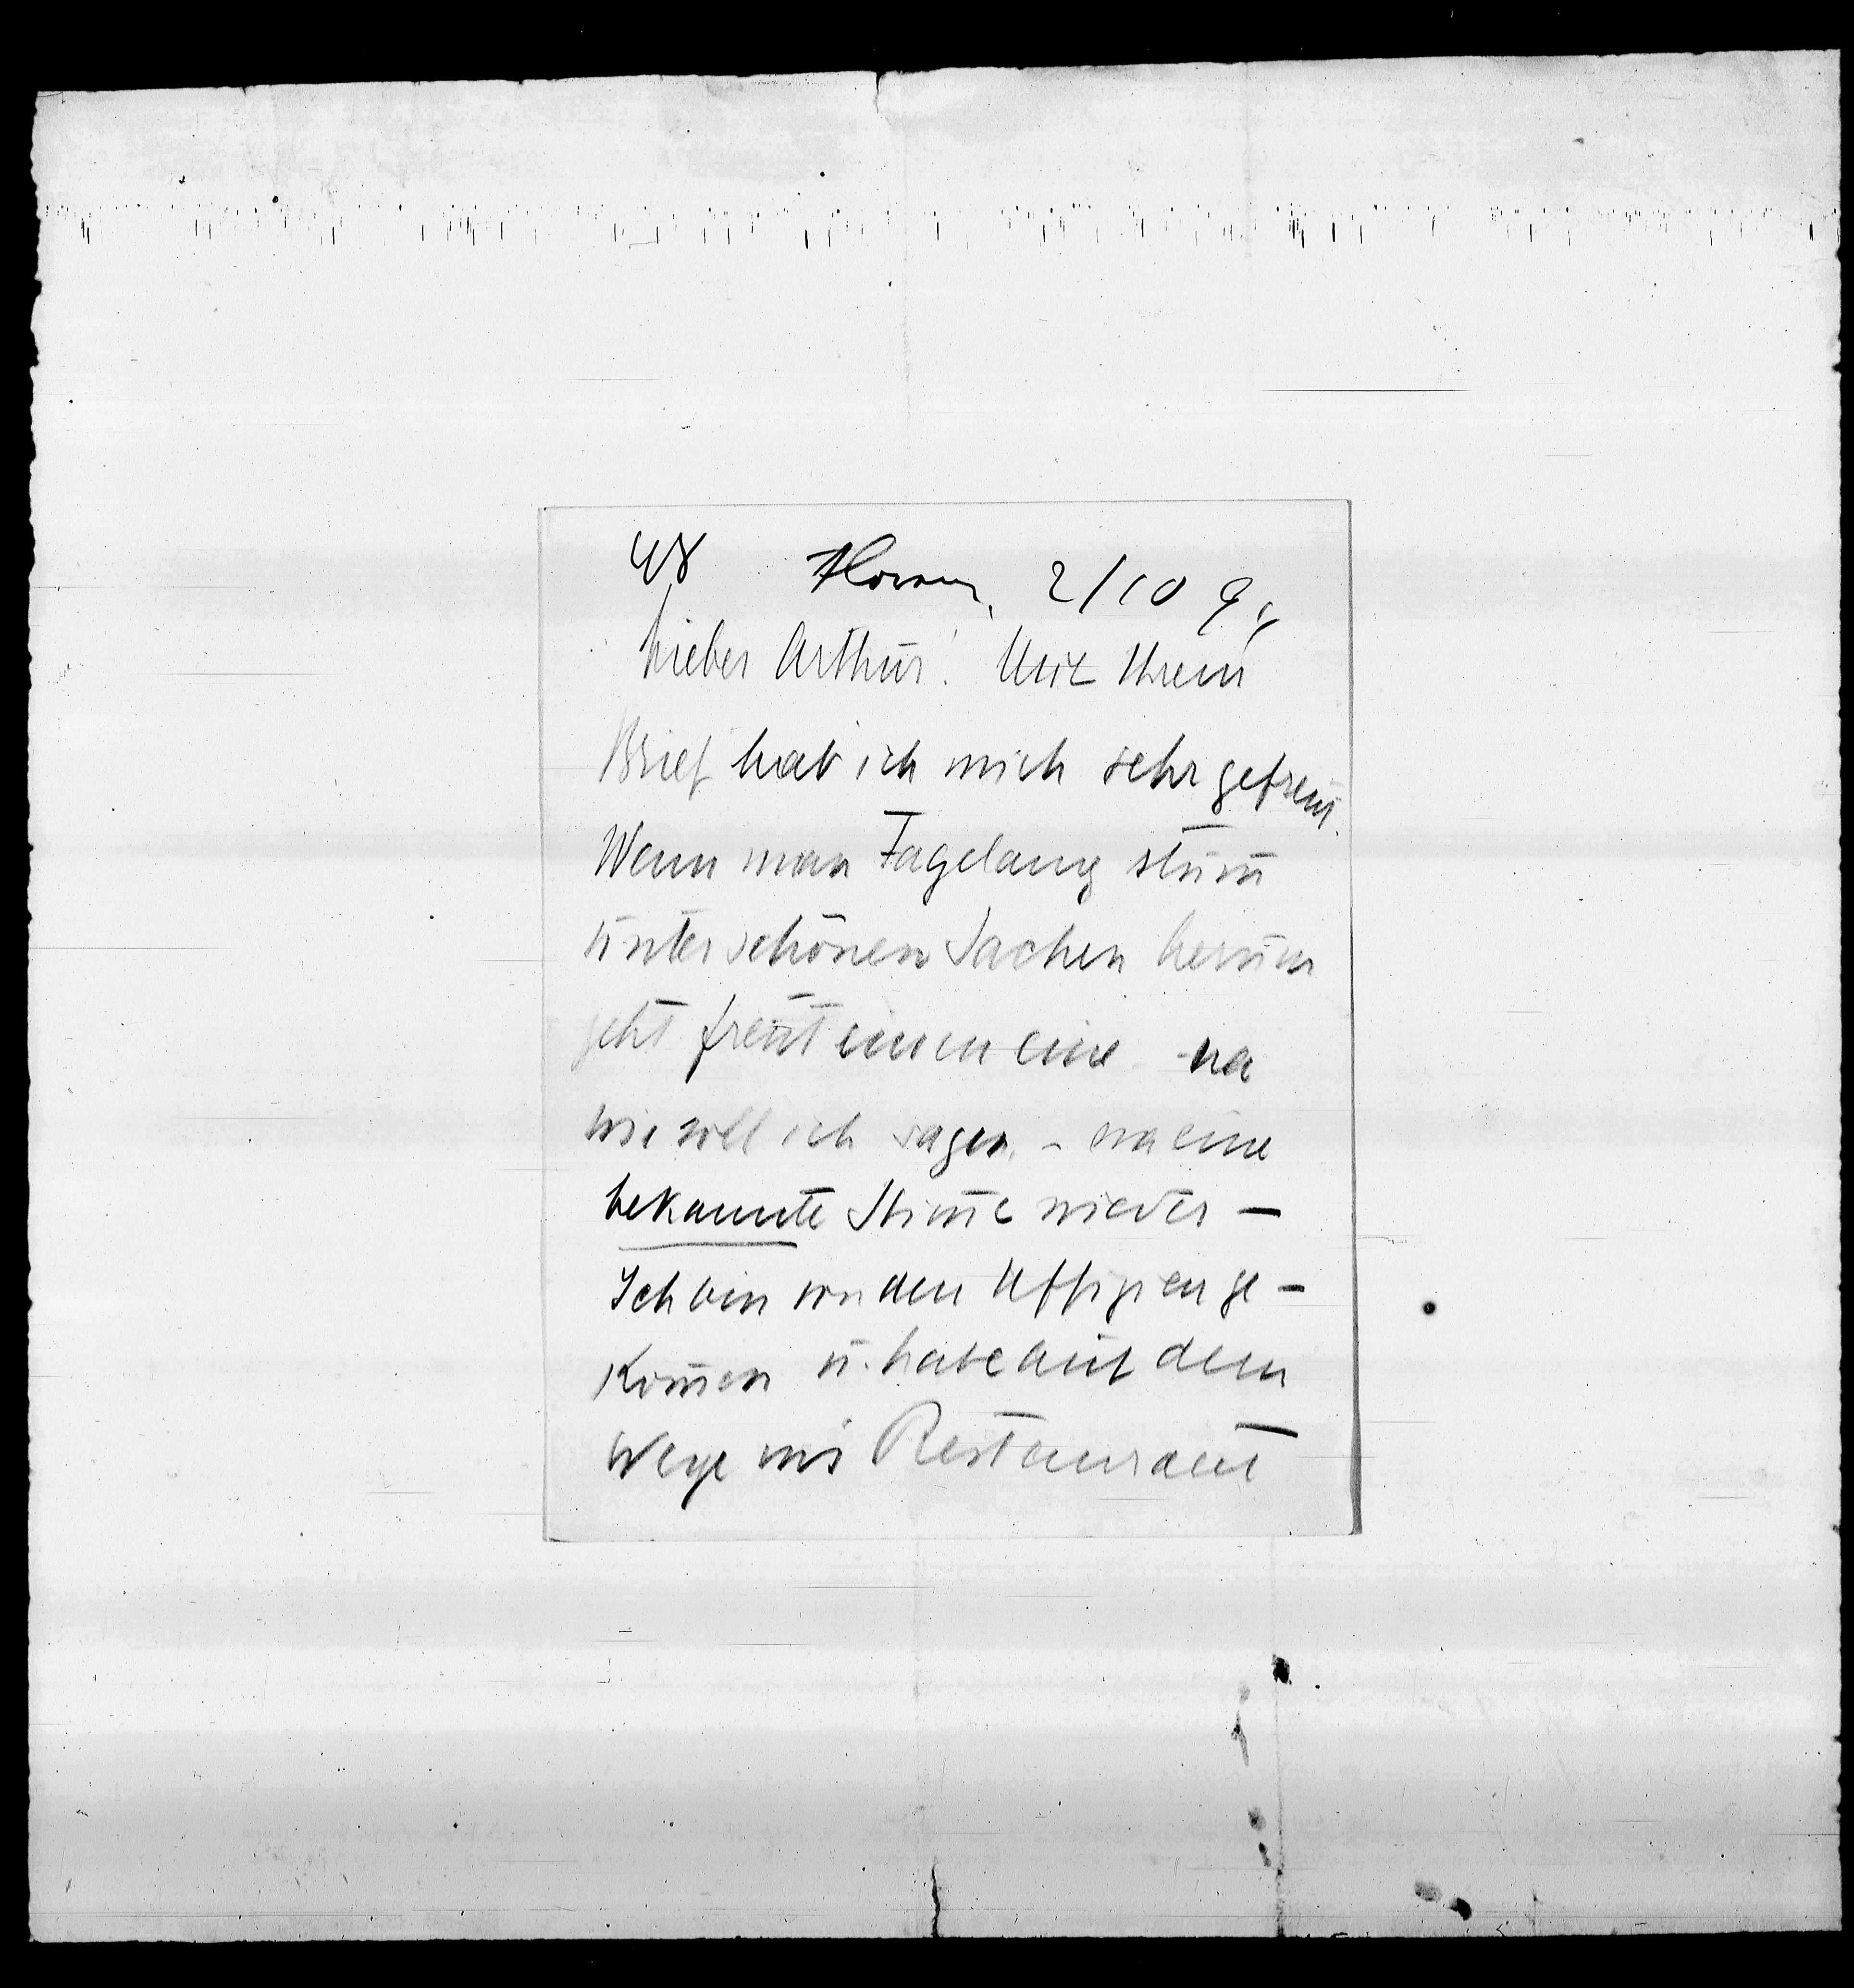 48 Florenz, 2/10 94
Lieber Arthur! Mit Ihrem
Brief hab ich mich sehr gefreut.
Wenn man Tagelang stum̄
unter schönen Sachen herum
geht freut einen eine – na
wie soll ich sagen, – na eine
bekannte Stim̄e wieder –
Ich bin von den Uffizien ge-
kom̄en u. habe auf dem
Wege ins Restaurant